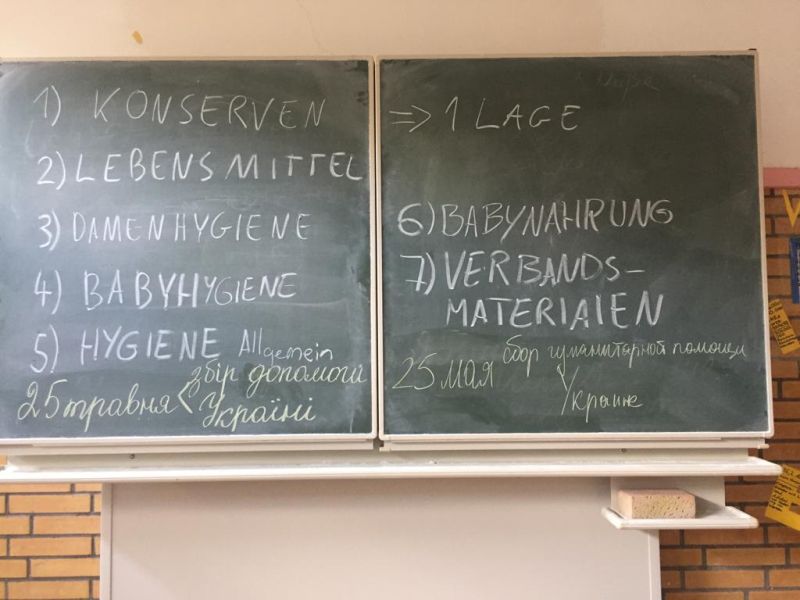 1) KONSERVEN
2) LEBENSMITTEL
3) DAMENHYGIENE
4) BABYHYGIENE
5) HYGIENE Allgemein
25 травня < збір допомоги
Україні
⇒ 1 LAGE
6) BABYNAHRUNG
7) VERBANDS-
MATERIALEN
25 мая сбор гуманитарной помощи
Украине